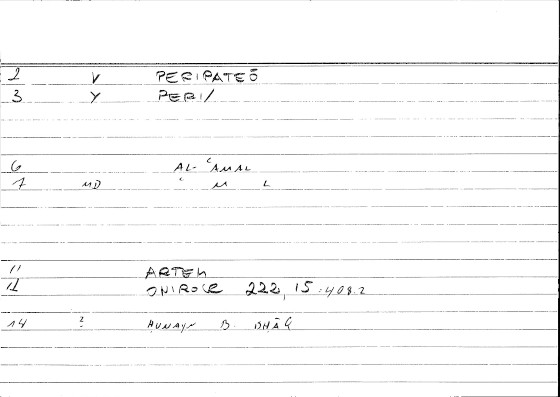 2 V PERIPATEŌ
3 Y PERI/
6 AL-ʿAMAL
7 MD ʿ M L
11 ARTEM
12 ONIROCR 222, 15 - 408.2
14 ? HUNAYN B. ISHĀQ